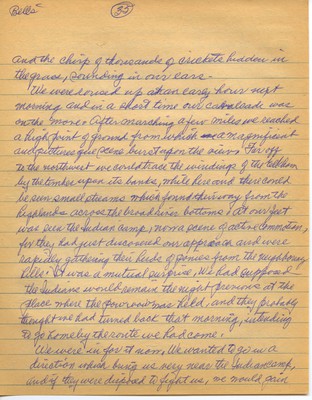 Bells
35
and the chirp of thousands of crickets hidden in
the grass, sounding in our ears.
We were roused up at an early hour next
morning and in a short time our cavalcade was
on the move. After marching a few miles we reached
a high point of ground from which a magnificent
and picturesque scene burst upon the view. Far off
to the northwest we could trace the windings of the Elkhorn
by the timber upon its banks, while here and there could
be seen small streams which found their way from the
highlands across the broad river bottoms; at our feet
was seen the Indian Camp, now a scene of active commotion,
for they had just discovered our approach and were
rapidly gathering their herds of ponies from the neighboring
hills. It was a mutual surprise. We had supposed
the Indians would remain the night previous at the
place where the powwow was held, and they probably
thought we had turned back that morning, intending
to go home by the route we had come.
We were in for it now. We wanted to go in a
direction which would bring us very near the Indian camp,
and if they were disposed to fight us, we would gain